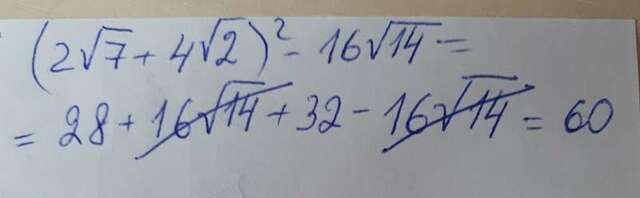 (2√7 + 4√2)² - 16√14 =
= 28 + 16√14 + 32 - 16√14 = 60